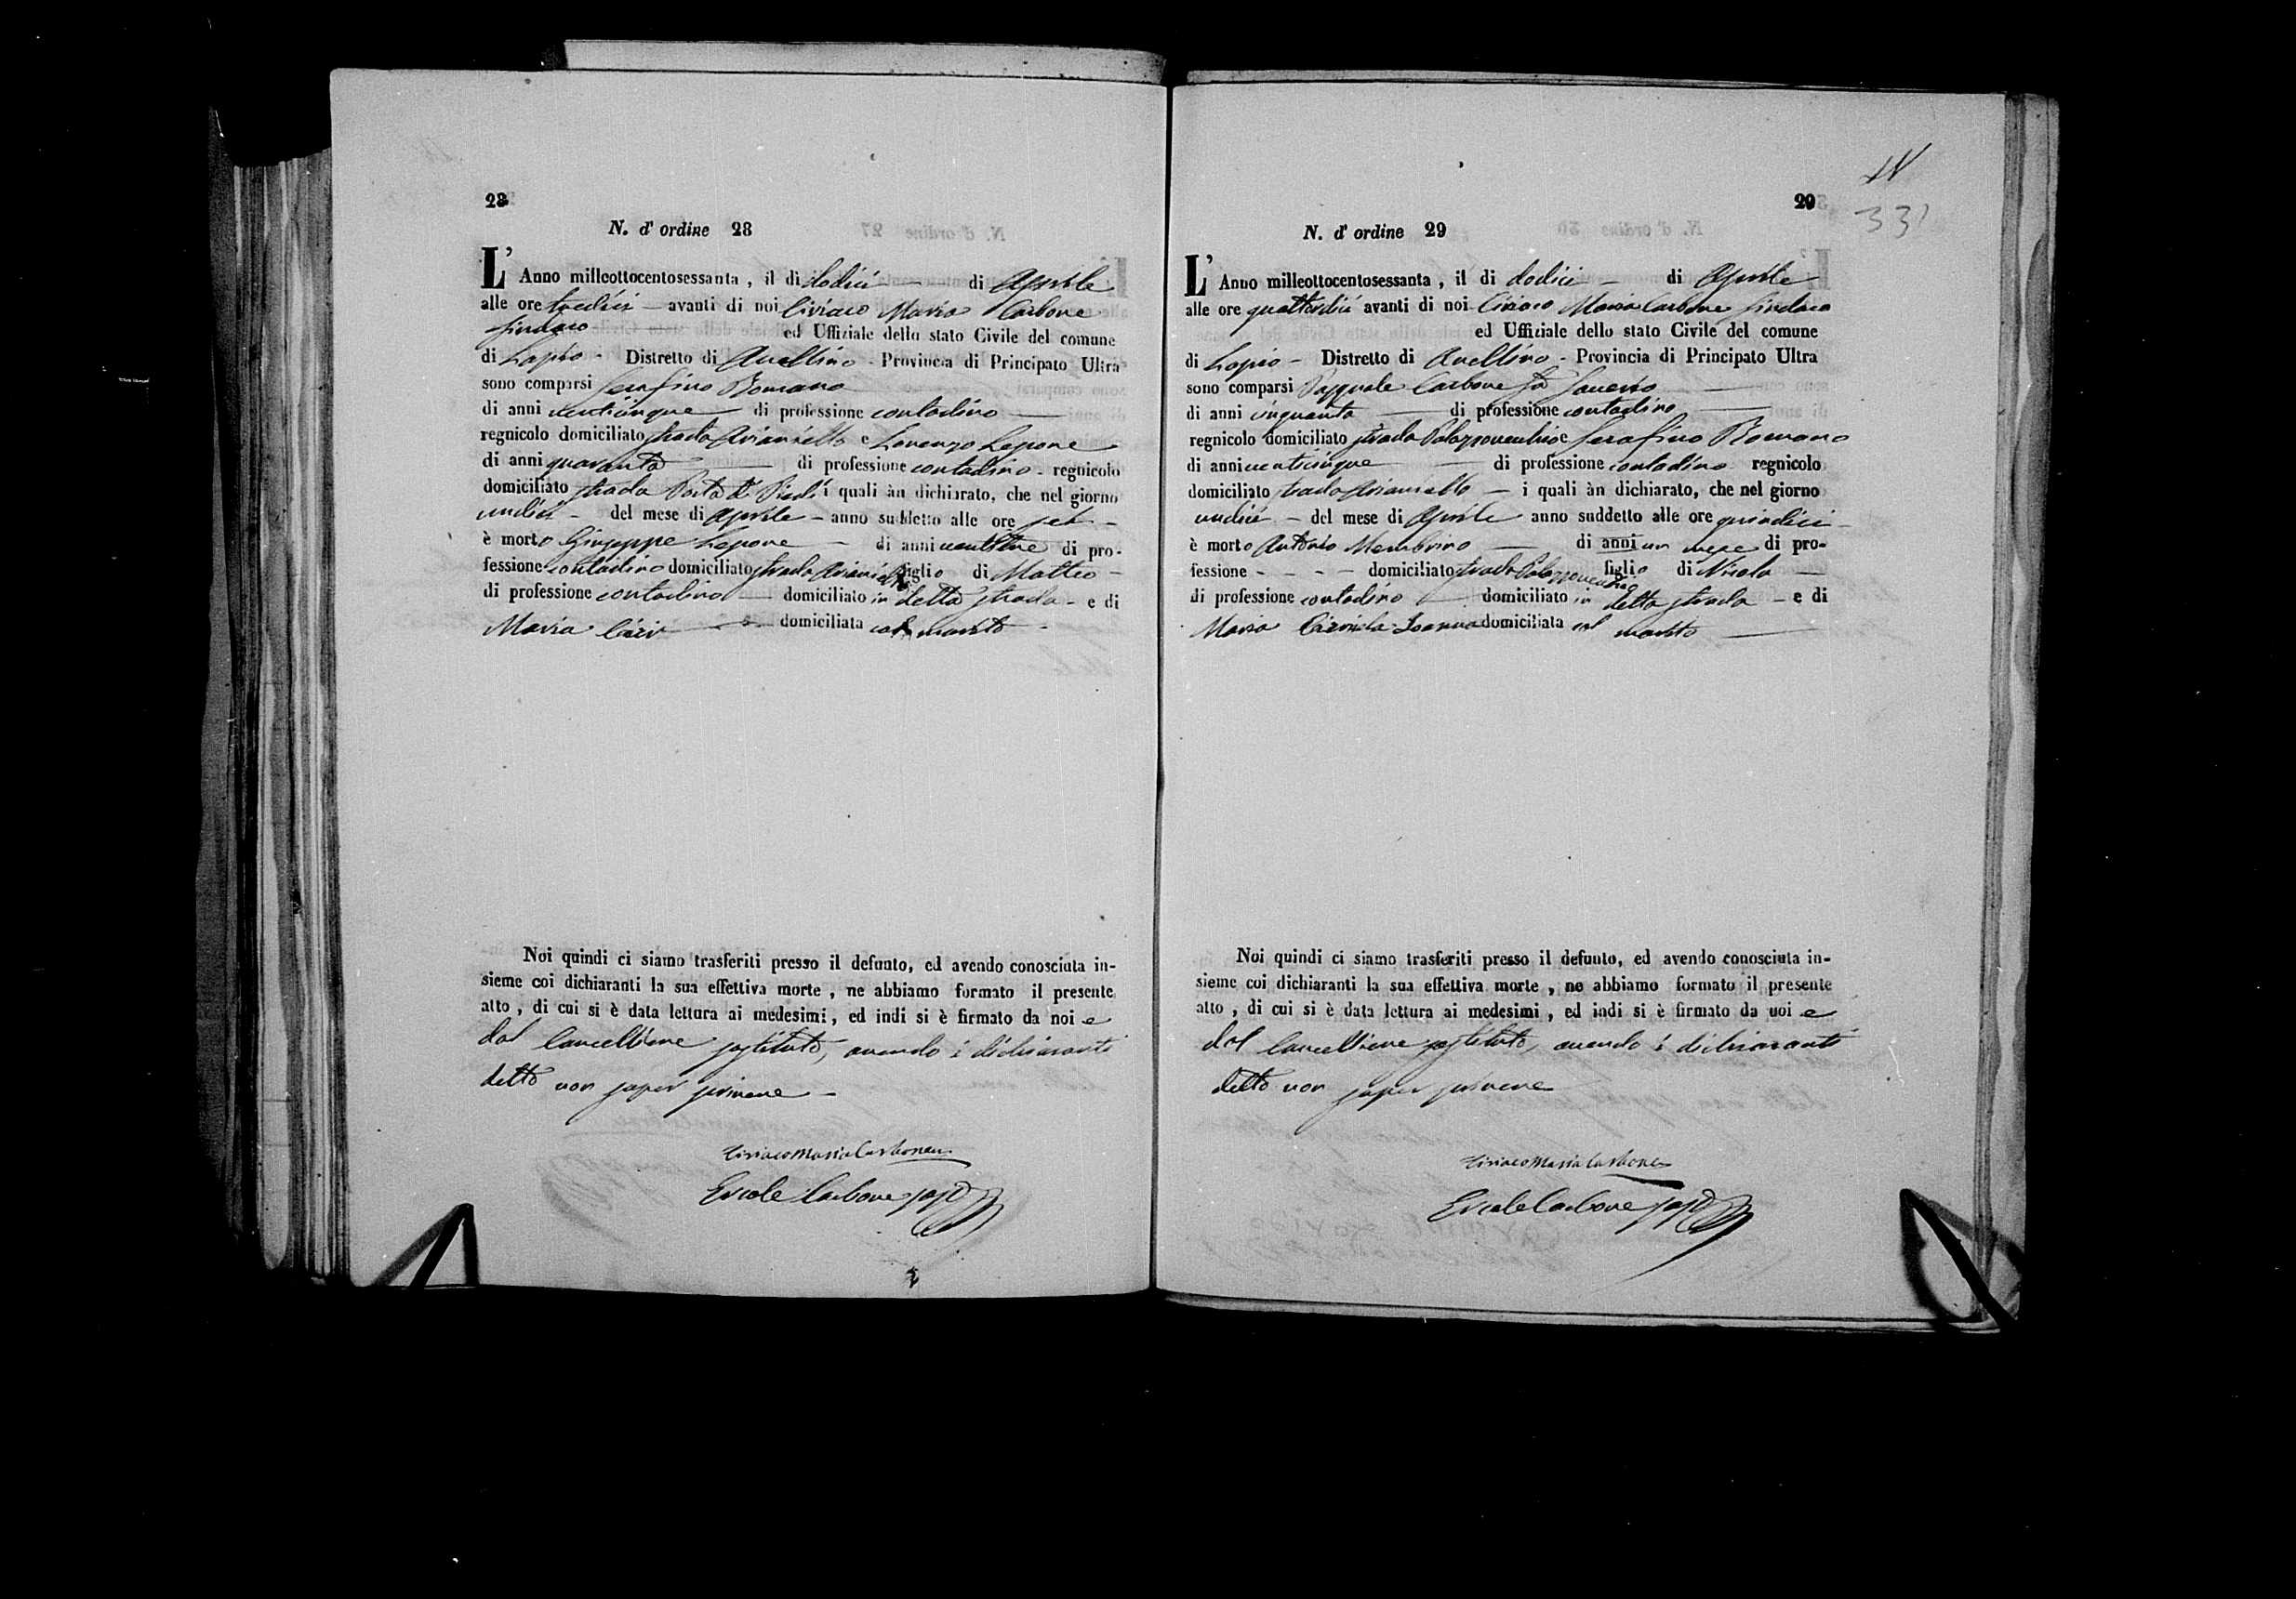 28
N. d' ordine 28
L' Anno milleottocentosessanta, il di dodici di Aprile
alle ore tredici avanti di noi Ciriaco Maria Carbone
Sindaco ed Uffiziale dello stato Civile del comune
di Lapio Distretto di Avellino Provincia di Principato Ultra
sono comparsi Serafino Romano
di anni venticinque di professione contadino
regnicolo domiciliato strada Arianiello e Lorenzo Lepore
di anni quaranta di professione contadino regnicolo
domiciliato strada Porta di i quali àn dichiarato, che nel giorno
undici del mese di Aprile anno suddetto alle ore sei
è morto Giuseppe Lepore di anni ventitre di pro-
fessione contadino domiciliato strada Arianiello figlio di Matteo
di professione contadino domiciliato in detta strada e di
Maria domiciliata col marito
Noi quindi ci siamo trasferiti presso il defunto, ed avendo conosciuta in-
sieme coi dichiaranti la sua effettiva morte, ne abbiamo formato il presente
atto, di cui si è data lettura ai medesimi, ed indi si è firmato da noi e
dal Cancelliere sostituto, avendo i dichiaranti
detto non saper scrivere
Ciriaco Maria Carbone
Ercole Carbone sost
29
33
N. d' ordine 29
L' Anno milleottocentosessanta, il di dodici di Aprile
alle ore quattordici avanti di noi Ciriaco Maria Carbone Sindaco
ed Uffiziale dello stato Civile del comune
di Lapio Distretto di Avellino Provincia di Principato Ultra
sono comparsi Pasquale Carbone fu Saverio
di anni cinquanta di professione contadino
regnicolo domiciliato strada e Serafino Romano
di anni venticinque di professione contadino regnicolo
domiciliato strada Arianiello i quali àn dichiarato, che nel giorno
undici del mese di Aprile anno suddetto alle ore quindici
è morto Antonio Membrino di anni un mese di pro-
fessione domiciliato strada figlio di Nicola
di professione contadino domiciliato in detta strada e di
Maria domiciliata col marito
Noi quindi ci siamo trasferiti presso il defunto, ed avendo conosciuta in-
sieme coi dichiaranti la sua effettiva morte, ne abbiamo formato il presente
atto, di cui si è data lettura ai medesimi, ed indi si è firmato da noi e
dal Cancelliere sostituto, avendo i dichiaranti
detto non saper scrivere
Ciriaco Maria Carbone
Ercole Carbone sost